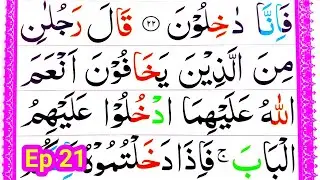 فَاِنَّا دٰخِلُوْنَ ﴿۲۲﴾ قَالَ رَجُلٰنِ
مِنَ الَّذِيْنَ يَخَافُوْنَ اَنْعَمَ
اللّٰهُ عَلَيْهِمَا ادْخُلُوْا عَلَيْهِمُ
الْبَابَ ۚ فَاِذَا دَخَلْتُمُوْهُ
Ep 21